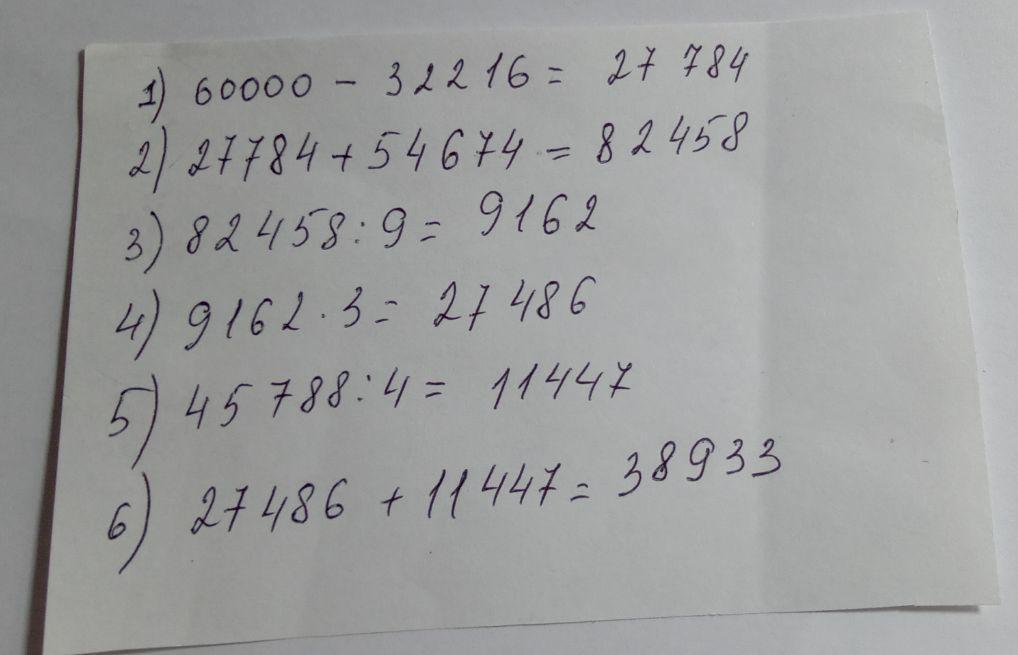 1) 60000 - 32216 = 27 784
2) 27784 + 54674 = 82458
3) 82458 : 9 = 9162
4) 9162 · 3 = 27486
5) 45788 : 4 = 11447
6) 27486 + 11447 = 38933